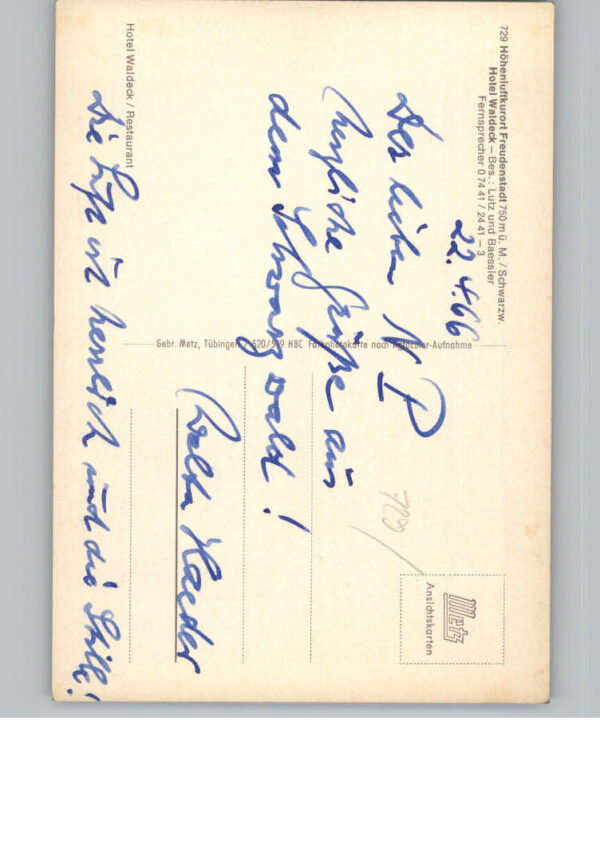 729 Höhenluftkurort Freudenstadt 750 m ü. M. / Schwarzw.
Hotel Waldeck – Bes.: Lutz und Baessler
Fernsprecher 0 74 41 / 24 41 – 3
22. 4. 66
Der lieben N P
herzliche Grüße aus
dem Schwarzwald!
Walter Haeder
Die Luft ist herrlich und die Stille!
Hotel Waldeck / Restaurant
Gebr. Metz, Tübingen 520/509 HBC Farbphotokarte nach Agfacolor-Aufnahme
729/
Metz
Ansichtskarten